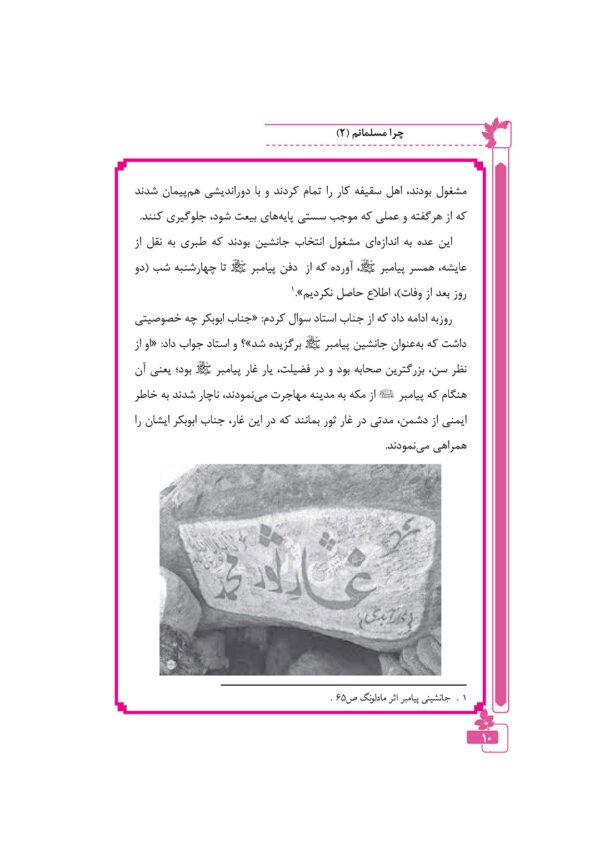 چرا مسلمانم (۲)
مشغول بودند، اهل سقیفه کار را تمام کردند و با دوراندیشی هم‌پیمان شدند
که از هر گفته و عملی که موجب سستی پایه‌های بیعت شود، جلوگیری کنند.
این عده به اندازه‌ای مشغول انتخاب جانشین بودند که طبری به نقل از
عایشه، همسر پیامبر ﷺ، آورده که از دفن پیامبر ﷺ تا چهارشنبه شب (دو
روز بعد از وفات)، اطلاع حاصل نکردیم».۱
روزبه ادامه داد که از جناب استاد سوال کردم: «جناب ابوبکر چه خصوصیتی
داشت که به‌عنوان جانشین پیامبر ﷺ برگزیده شد»؟ و استاد جواب داد: «او از
نظر سن، بزرگترین صحابه بود و در فضیلت، یار غار پیامبر ﷺ بود؛ یعنی آن
هنگام که پیامبر ﷺ از مکه به مدینه مهاجرت می‌نمودند، ناچار شدند به خاطر
ایمنی از دشمن، مدتی در غار ثور بمانند که در این غار، جناب ابوبکر ایشان را
همراهی می‌نمودند.
غار ثور محمد
۱ . جانشینی پیامبر اثر مادلونگ ص۶۵ .
۱۰